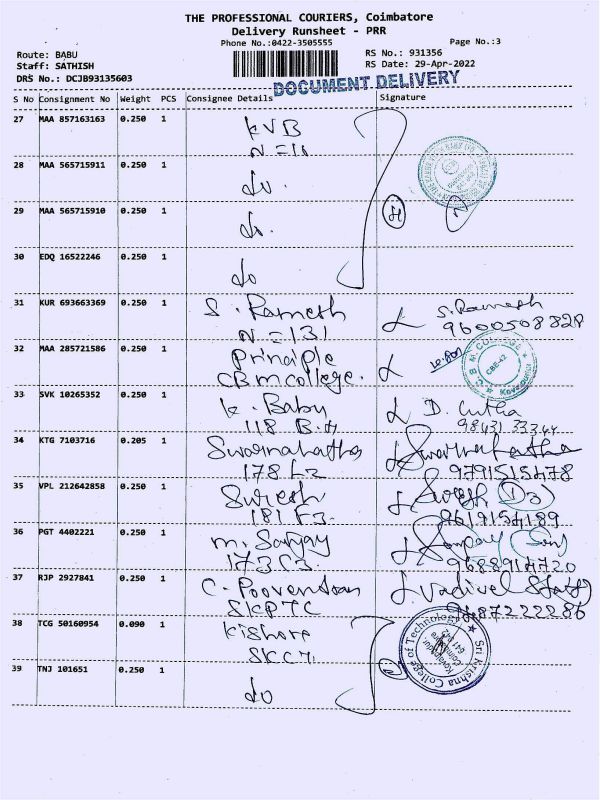 THE PROFESSIONAL COURIERS, Coimbatore
Delivery Runsheet - PRR
Phone No.:0422-3505555 Page No.:3
Route: BABU RS No.: 931356
Staff: SATHISH RS Date: 29-Apr-2022
DRS No.: DCJB93135603
DOCUMENT DELIVERY
S No Consignment No Weight PCS Consignee Details Signature
27 MAA 857163163 0.250 1 KVB
28 MAA 565715911 0.250 1 do.
29 MAA 565715910 0.250 1 do.
30 EDQ 16522246 0.250 1 do
31 KUR 693663369 0.250 1 S. Ramesh S. Ramesh
N=131 9600508828
32 MAA 285721586 0.250 1 Principle
CBM college. C.B.M COLLEGE CBE-42 Kovaipudur
33 SVK 10265352 0.250 1 K. Babu
118 98431 33344
34 KTG 7103716 0.205 1 Swarnalatha Swarnalatha
178 9791515478
35 VPL 212642858 0.250 1 Suresh
181 F3.
36 PGT 4402221 0.250 1 M. Sanjay
173 C3 9688914720
37 RJP 2927841 0.250 1 C. Pooventhan Vadivel
SKPTC 9487222286
38 TCG 50160954 0.090 1 Kishore
Sri Krishna College of Technology Kovaipudur Coimbatore 641 042
39 TNJ 101651 0.250 1 do